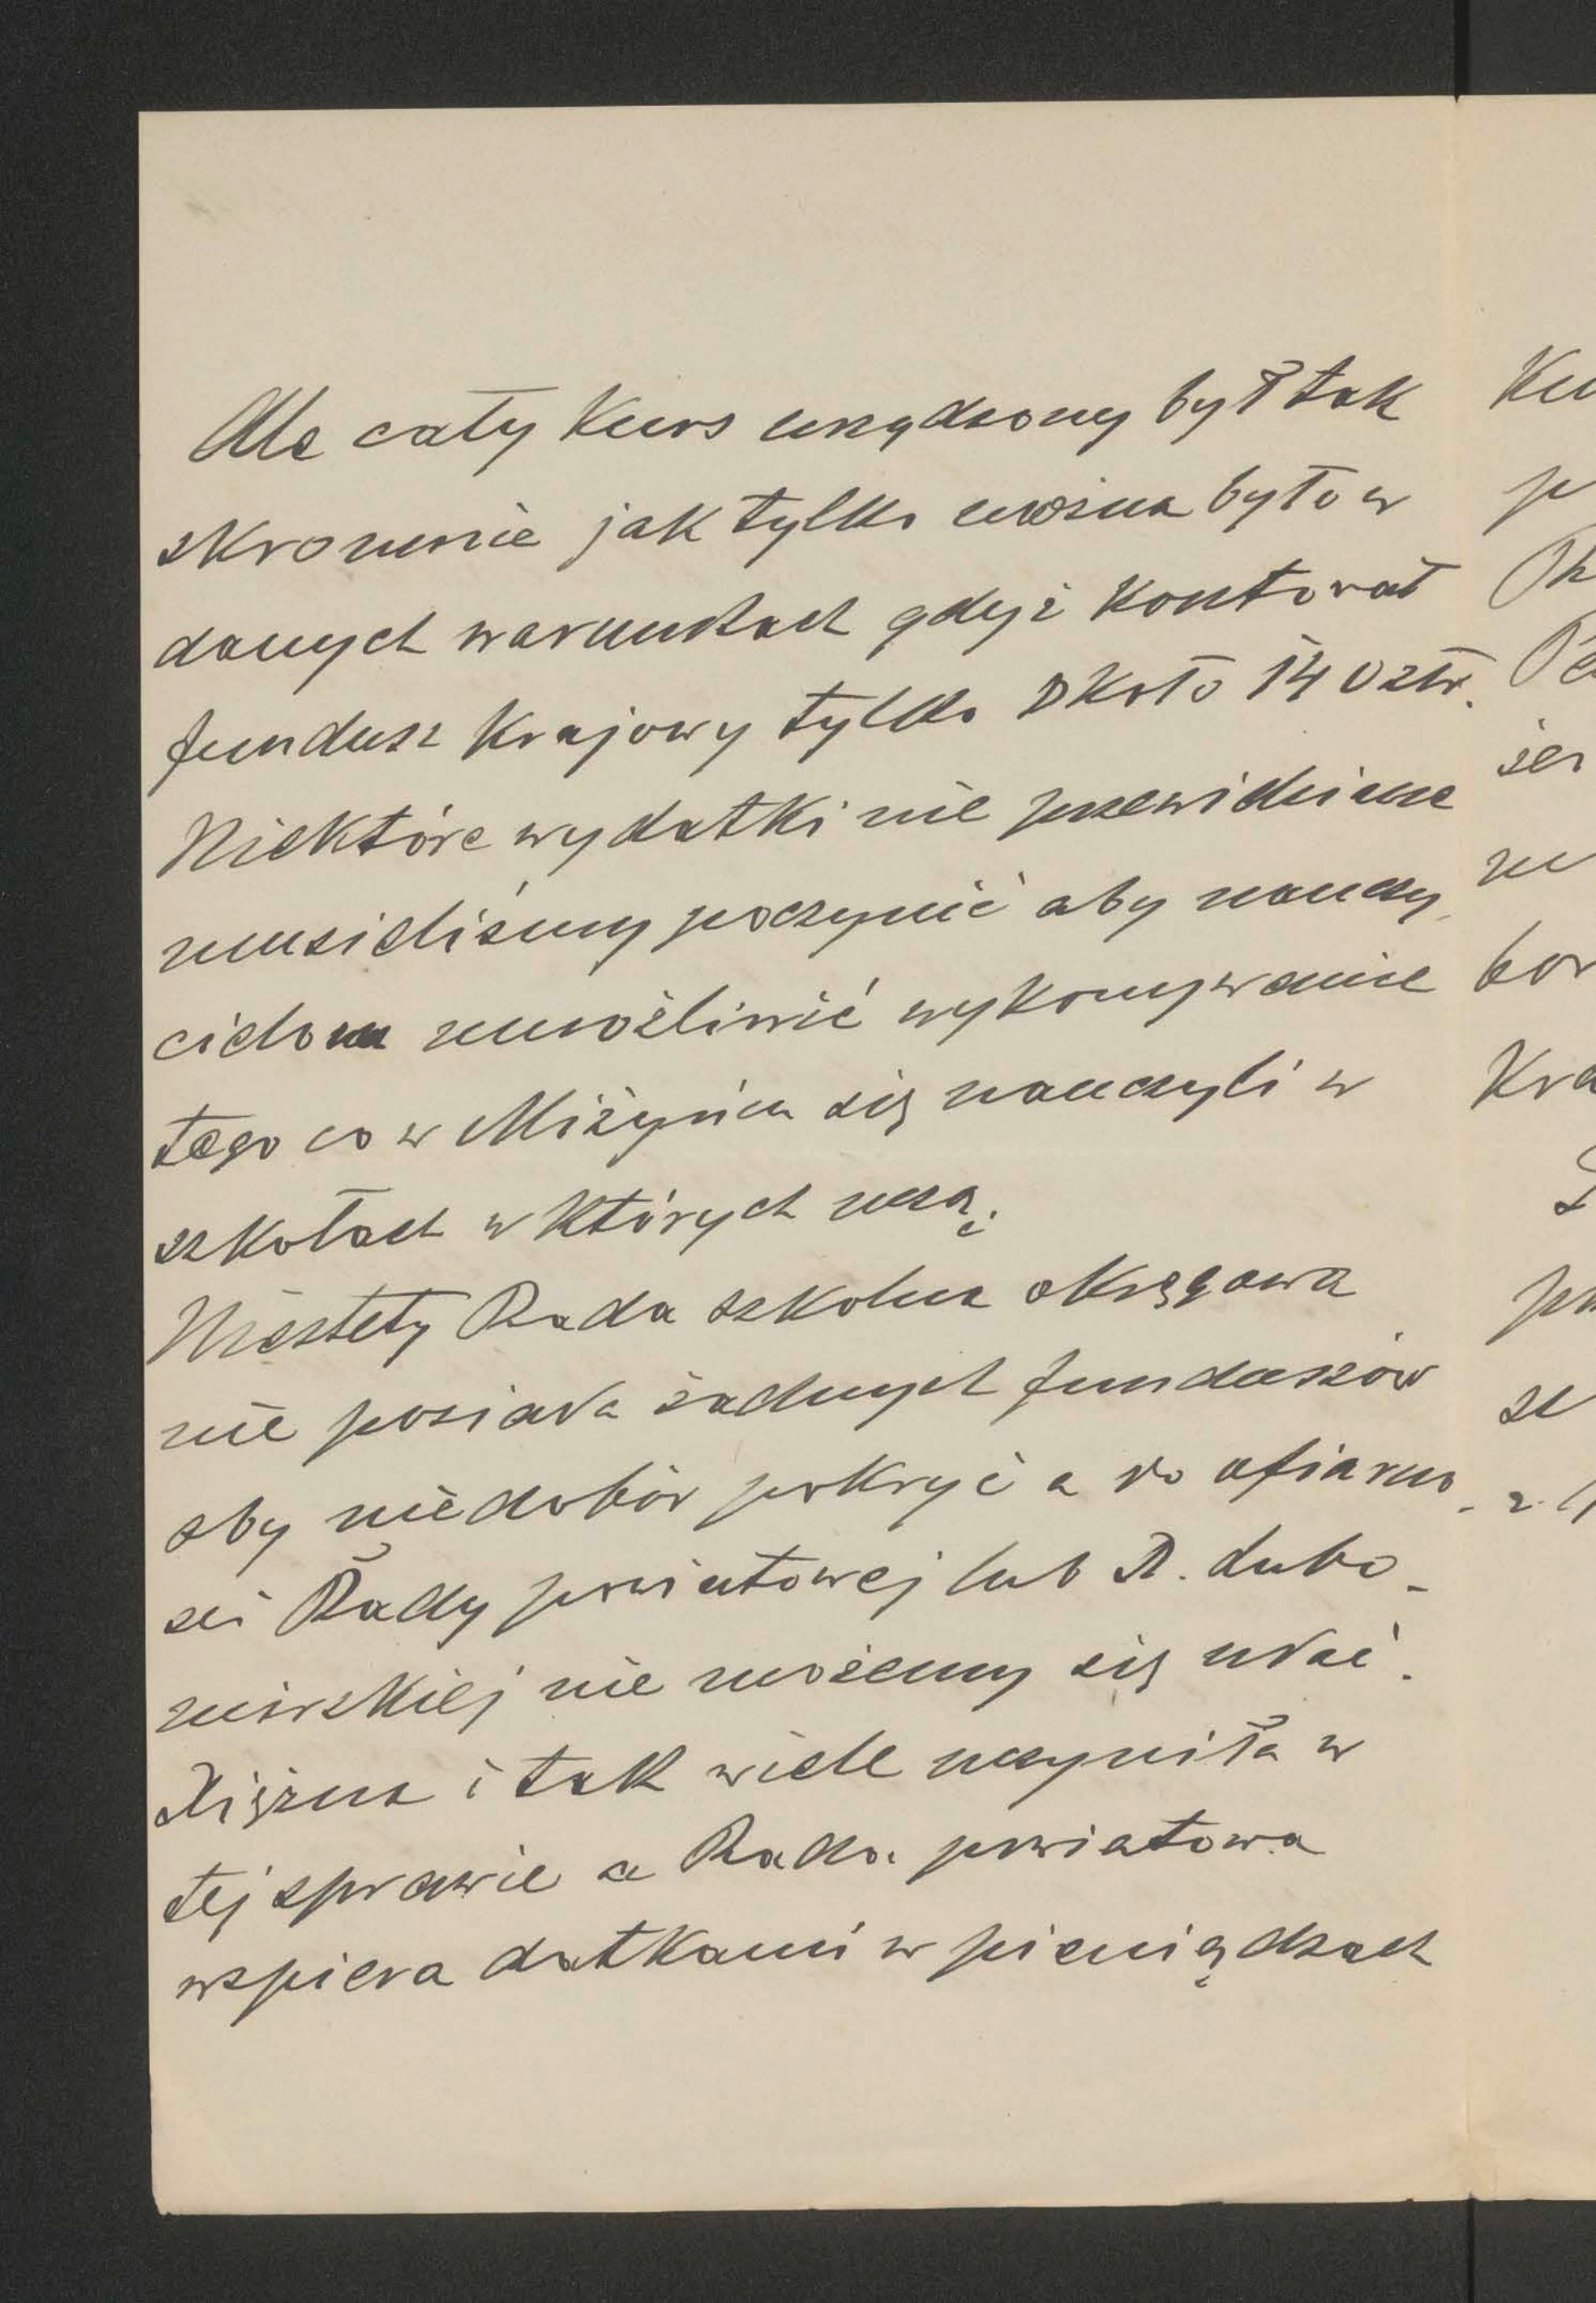 Ale cały Kurs urządzony był tak
skromnie jak tylko można było w
danych warunkach gdyż kosztował
fundusz Krajowy tylko około 140 złr.
Niektóre wydatki nie przewidziane
musieliśmy poczynić aby nauczy-
cielom umożliwić wykonywanie
tego co w Miżyńcu się nauczyli w
szkołach w których uczą.
Niestety Rada szkolna okręgowa
nie posiada żadnych funduszów
aby niedobór pokryć a do ofiarno-
ści Rady powiatowej lub X. Lubo-
mirskiej nie możemy się udać.
Xiężna i tak wiele uczyniła w
tej sprawie a Rada powiatowa
wspiera datkami w pieniądzach